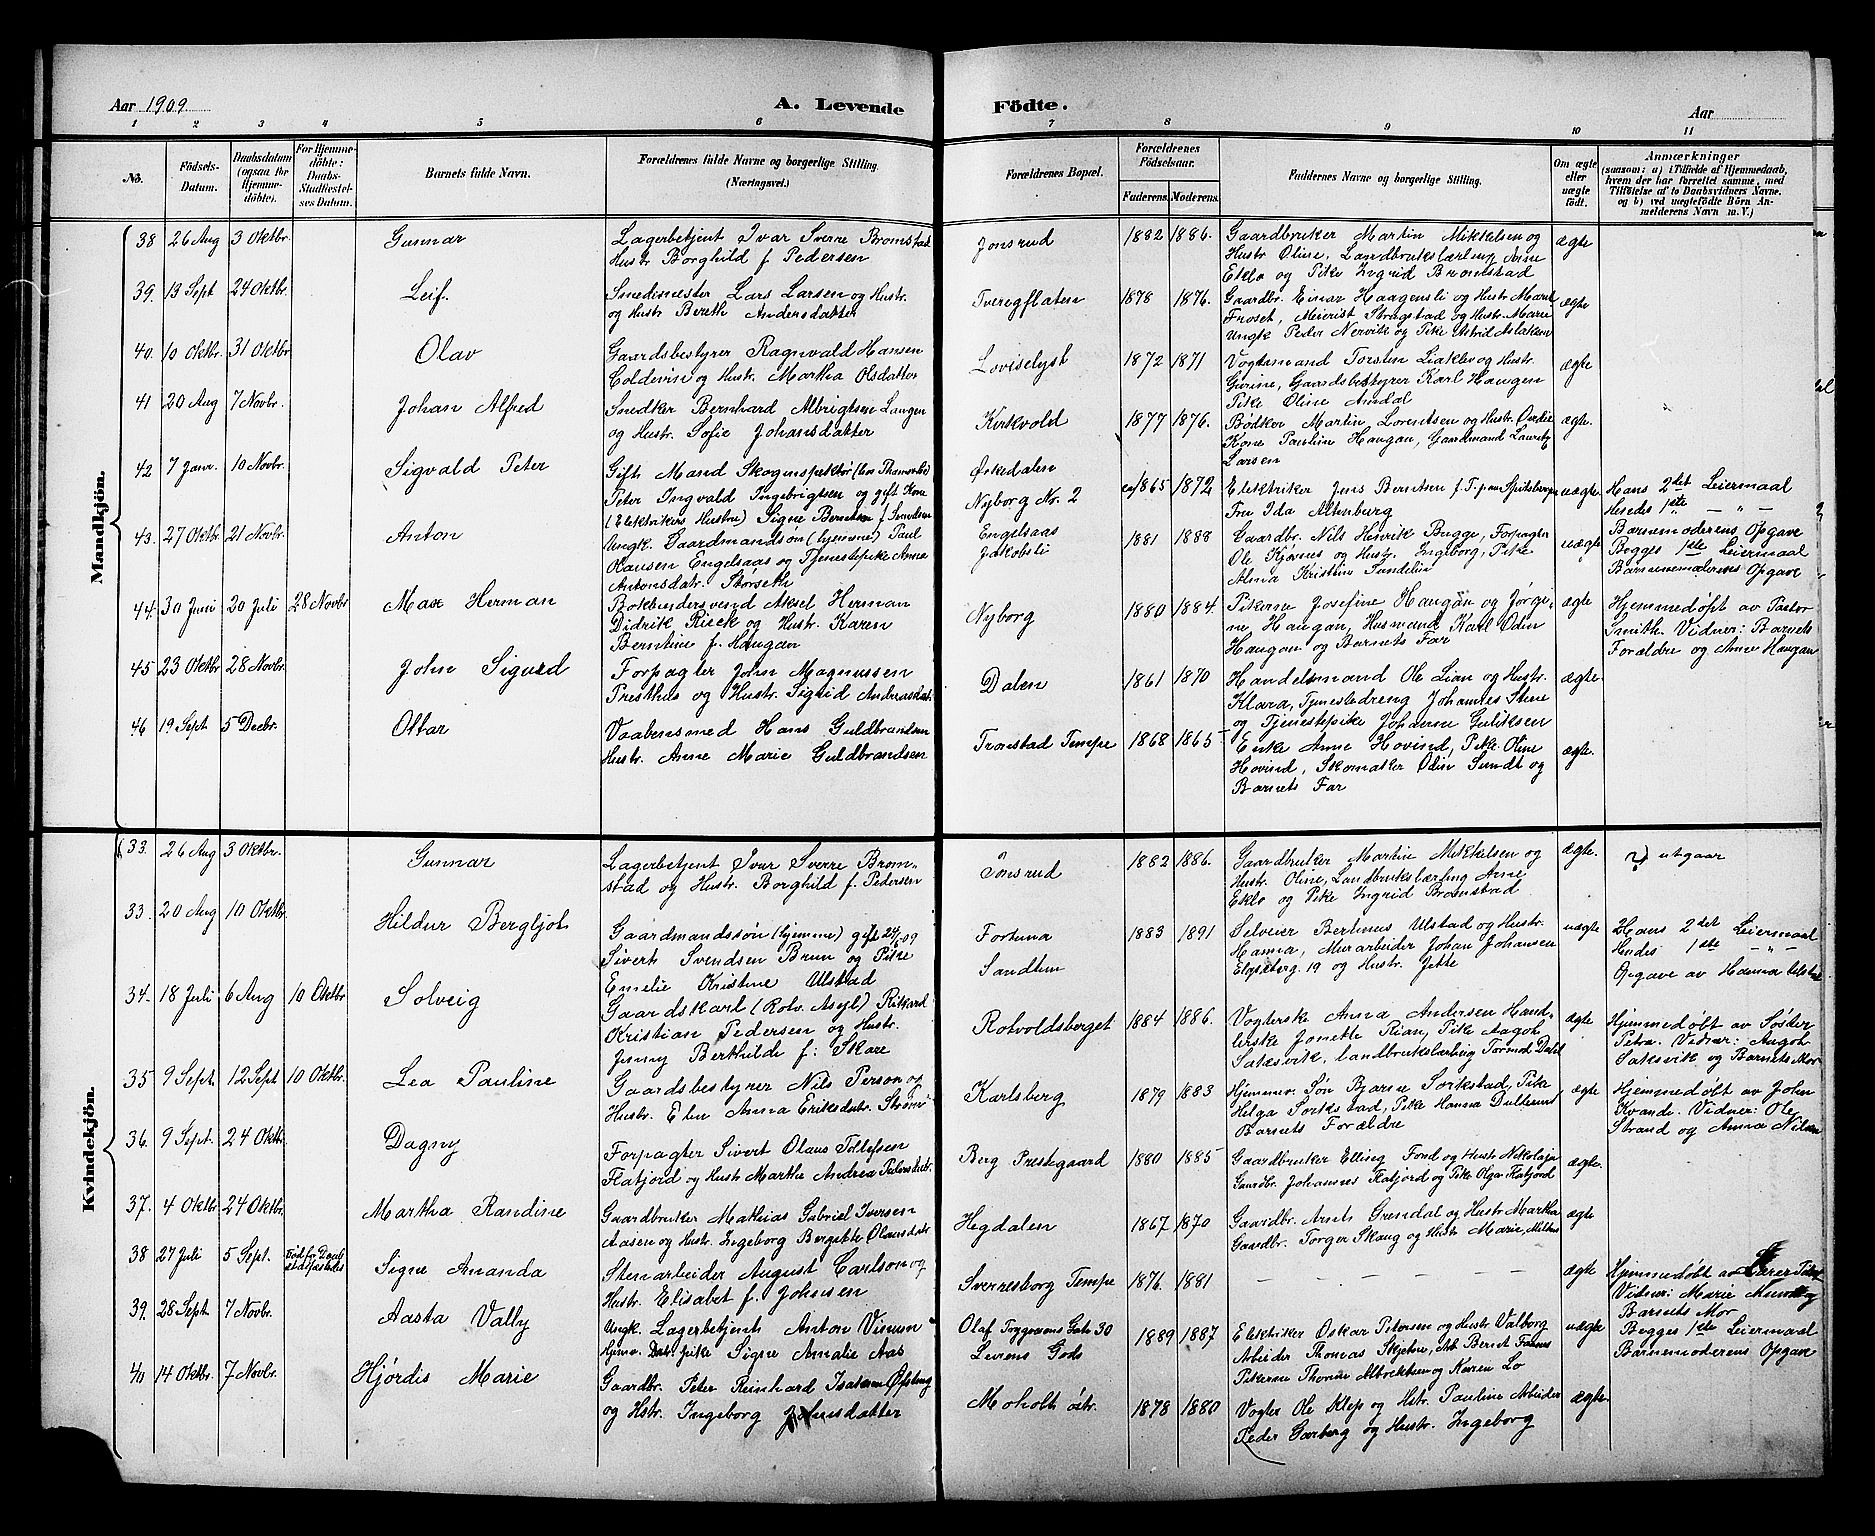 Aar 1909.
A. Levende Födte.
Aar
1 2 3 4 5 6 7 8 9 10 11
No.
Födsels-Datum.
Daabsdatum (ogsaa for Hjemmedöbte).
For Hjemmedöbte: Daabs-Stadfæstelses Datum.
Barnets fulde Navn.
Forældrenes fulde Navne og borgerlige Stilling.
(Næringsvei.)
Forældrenes Bopæl.
Forældrenes Födselsaar.
Faderens. Moderens.
Faddernes Navne og borgerlige Stilling.
Om ægte eller uægte födt.
Anmærkninger
(saasom: a) i Tilfælde af Hjemmedaab, hvem der har forrettet samme, med Tilföielse af to Daabsvidners Navne, og b) ved uægtefödte Börn Anmelderens Navn m. V.)
Mandkjön.
38 26 Aug 3 Oktbr. Gunnar
Lagerbetjent Ivar Sverre Bromstad
Hustr Borghild f. Pedersen
Jonsrud 1882 1886.
Gaardbruker Martin Mikkelsen og
Hustr Oline, Landbrukslærling Arne
Eklo og Pike Ingrid Bromstad
ægte
39. 13 Sept 24 Oktbr. Leif.
Smedmester Lars Larsen og Hustr.
og Hustr Bereth Andersdatter
Tveregflaten 1878 1876.
Gaardbr. Einar Haagensli og Hustr Marit
Froset, Meierist Stragstad og Hustr. Marie
Ungk Peder Nervik og Pike Astrid Alakken
ægte
40. 10 Oktbr. 31 Oktbr Olav
Gaardsbestyrer Ragnvald Hansen
Coldevin og Hustr. Martha Olsdatter
Loviselyst 1872 1871
Vogtermand Torsten Liaklev og Hustr.
Gurine, Gaardsbestyrer Karl Haugen
Pike Oline Amdal
ægte
41 20 Aug 7 Novbr. Johan Alfred
Snedker Bernhard Albrigtsen Langen
og Hustr. Sofie Johansdatter
Kirkvold 1877 1876.
Bødker Martin Lorentsen og Hustr.
Kone Pauline Haugan, Gaardmand Lauritz
Larsen
ægte.
42 7 Janr. 10 Novbr. Sigvald Peter
Gift Mand Skoginspektør (hos Thams)
Peter Ingvald Ingebrigtsen og gift Kone
(Elektrikers Hustru) Signe Berntsen f. Svendsen
Ørkedalen
Nyborg Nr. 2 1865 1872
Elektriker Jens Berntsen f. T. paa Spitsbergen
Fru Ida Altenburg
uægte
Hans 2det Leiermaal
Hendes 1ste — " —
Barnemoderens Opgave
43. 27 Oktbr 21 Novbr. Anton
Ungk. Gaardmandsøn (hjemme) Paul
Olausen Engelsaas og Tjenestepike Anna
Antonsdatr. Størseth
Engelsaas
Jakobsli 1881 1888
Gaardbr. Nils Henrik Bugge, Forpagter
Ole Kjønes og Hustr. Ingeborg, Pike
Alma Kristine Sundelin
uægte
Begges 1ste Leiermaal
Barnemoderens Opgave
44. 30 Juni 20 Juli 28 Novbr Max Herman
Bokbindersvend Aksel Herman
Didrik Rieck og Hustr. Karen
Berntine f. Haugan
Nyborg 1880 1884.
Pikerne Josefine Haugan og Jørgi-
ne Haugan, Husmand Karl Odin
Haugan og Barnets Far
ægte
Hjemmedøpt av Pastor
Smith. Vidner: Barnets
Forældre og Anne Haugan
45 23 Oktbr 28 Novbr. John Sigurd
Forpagter John Magnussen
Presthus og Hustr. Sigrid Andersdatr.
Dalen 1861 1870
Handelsmand Ole Lian og Hustr.
Klara, Tjenestedreng Johannes Stene
og Tjenestepike Johanne Guliksen
ægte
46 19 Sept 5 Decbr. Ottar
Vaabensmed Hans Guldbrandsen
Hustr. Anne Marie Guldbrandsen
Tronstad Tempe 1868 1865
Enke Anne Hovind, Pike Oline
Hovind, Skomaker Odin Sundt og
Barnets Far
ægte.
Kvindekjön.
33. 26 Aug 3 Oktbr. Gunnar
Lagerbetjent Ivar Sverre Brom-
stad og Hustr. Borghild f. Pedersen
Jonsrud 1882 1886.
Gaardbruker Martin Mikkelsen og
Hustr. Oline, Landbrukslærling Arne
Eklo og Pike Ingrid Bromstad
ægte.
utgaar
33. 20 Aug 10 Oktbr. Hildur Bergljot
Gaardmandssøn (hjemme) gift 24/6-09
Sivert Svendsen Brun og Pike
Emelie Kristine Ulstad
Fortuna
Sandlun 1883 1891
Selveier Bertinus Ulstad og Hustr.
Hanna, Murarbeider Johan Johansen
Elgseterg. 19 og Hustr. Jette
uægte
Hans 2det Leiermaal
Hendes 1ste — " —
Opgave av Hanna Ulstad
34. 18 Juli 6 Aug 10 Oktbr Solveig
Gaardskarl (Rotv. Asyl) Rikard
Kristian Pedersen og Hustr.
Jenny Berthilde f: Skare
Rotvoldsberget 1884 1886.
Vogterske Anna Andersen Hand-
lerske Jonette Rian, Pike Aagoh
Sataøvik, landbrukslærling Tormod Dahl
ægte
Hjemmedøbt av Søster
Petra. Vidner: Aagoh
Sataøvik og Barnets Mor
35. 9 Sept. 12 Sept 10 Oktbr. Lea Pauline
Gaardsbestyrer Nils Person og
Hustr. Elen Anna Eriksdatr. Strøm
Karlsberg 1879 1883
Hjemmev. Søn Bjarne Sorkstad, Pike
Helga Sorkstad, Pike Hanna Dulterud
Barnets Forældre
ægte
Hjemmedøbt av John
Kvande. Vidner: Ole
Strand og Anna Nilsen
36. 9 Sept. 24 Oktbr. Dagny
Forpagter Sivert Olaus Tollefsen
Flatjord og Hustr Martha Andrea
Berg Prestegaard 1880 1885
Gaardbruker Elling Fond og Hustr Nikolaja
Gaardbr. Johannes Flatjord og Pike Olga Flatjord
ægte.
37. 4 Oktbr 24 Oktbr. Martha Randine
Gaardbruker Mathias Gabriel Iversen
Aasen og Hustr. Ingeborg Bergitte Olausdatr
Hegdalen 1867 1870
Gaardbr. Arnt Grendal og Hustr Martha
Gaardbr. Torger Skaug og Hustr Marie,
ægte
38 27 Juli 5 Sept. Død før Daab stadfæstedes Signe Amanda
Stenarbeider August Carlson og
Hustr. Elisabet f. Johnsen
Sverresborg Tempe 1876. 1881
— — — — — —
ægte
Hjemmedøbt av Lærer
Vidner: Marie
Barnets Mor
39. 28 Sept 7 Novbr. Aasta Vally
Ungk. Lagerbetjent Anton Vinum
Hjmv. Datr. Pike Signe Amalie Aas
Olaf Tryggvasons Gate 30
Leirens Gods 1889 1887
Elektriker Oskar Petersen og Hustr Valborg
Arbeider Thomas Skjetne, Arb Bernt
Pikerne Thorine Albrektsen og Karen Lo
uægte
Begges 1ste Leiermaal
Barnemoderens Opgave
40 14 Oktbr. 7 Novbr. Hjördis Marie
Gaardbr. Peter Reinhard Isaksen
og Hstr. Ingeborg Johnsdatter
Moholt östr. 1878 1880
Vogter Ole Klep og Hstr. Pauline Arbeider
Peder Garberg og Hustr. Ingeborg
ægte.